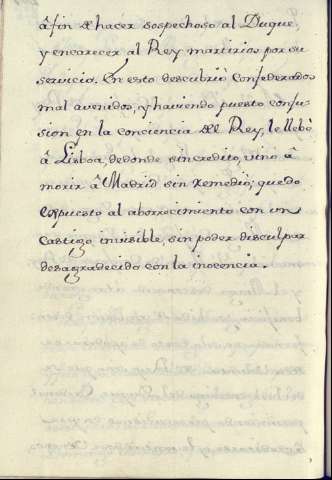 â fin de hacer sospechoso al Duque,
y encarecer al Rey martirios por su
servicio. En esto descubriò Confederados
mal avenidos, y haviendo puesto confu-
sion en la conciencia del Rey, le llebò
â Lisboa, de donde sin credito, vino â
morir â Madrid sin remedio; quedo
expuesto al aborrecimiento con un
castigo invisible, sin poder disculpar
desagradecido con la inocencia.